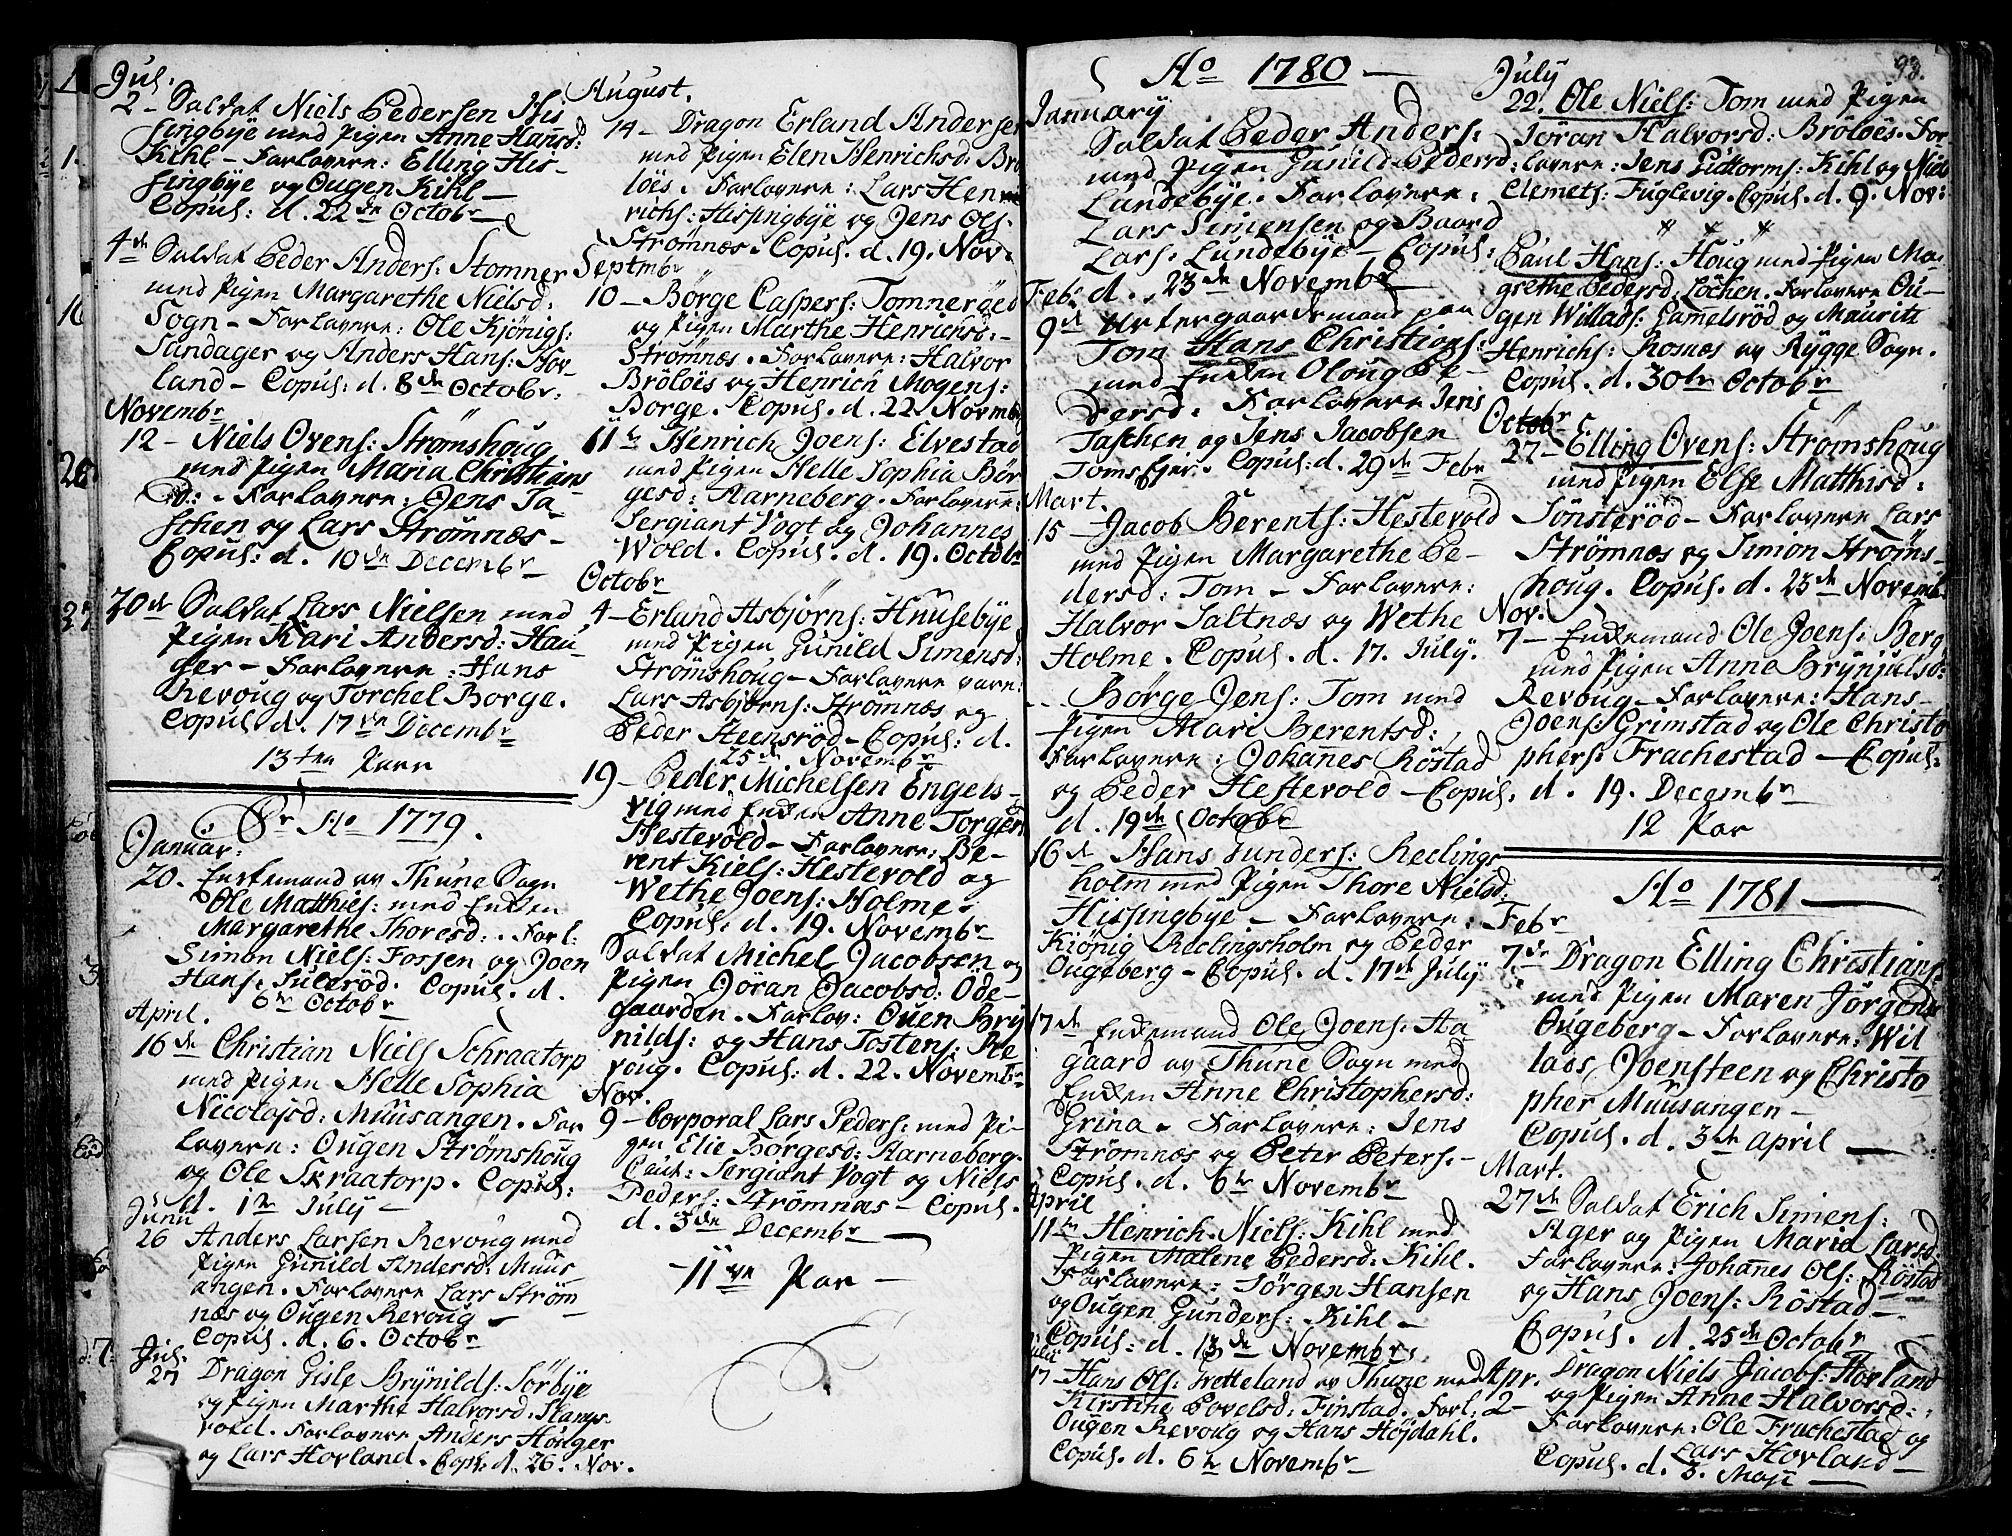 Jul.
2 - Soldat Niels Pedersen His
singbye med Pigen Anne Hansd:
Kihl - Forlovere: Elling His-
singbye og Ougen Kihl -
Copul: d. 22de Octobr
4de Soldat Peder Anders: Stomner
med Pigen Margarethe Nielsd:
Sogn - Forlovere: Ole Kjönigs:
Sandager og Anders Hans: Hov-
land - Copul: d. 8de Octobr:
Novembr
12 - Niels Ovens: Strömshoug
med Pigen Maria Christians
d: - Forlovere: Jens Ta-
schen og Lars Strömnæs -
Copul: d. 10de Decembr
20de Soldat Lars Nielsen med
Pigen Kari Andersd: Hau-
ger - Forlovere: Hans
Revoug og Torchel Borge.
Copul d. 17de Decembr
13ten Parr
Pr Ao 1779.
Januar:
20. Enkemand av Thune Sogn
Ole Matthies: med Enken
Margarethe Thoresd: Forl:
Simon Niels: Fossen og Joen
Hans: Suleröd. Copul. d.
6te Octobr
April.
16de Christian Niels Schraatorp
med Pigen Helle Sophia
Nicolaisd: Muusangen. For
lovere: Ougen Strömshoug
og Ole Skraatorp. Copul:
d. 1te July -
Juny
26 Anders Larsen Revoug med
Pigen Gunild Andersd: Muus
angen. Forlovere Lars Ström
næs og Ougen Revoug -
Copul. d. 6. Octobr
Jul.
27 Dragon Gisle Brynilds: Sörbye
og Pigen Marthe Halvorsd: Slangs
vold. Forlovere Anders Hönger
og Lars Hovland. Copl: d. 26. Nov.
August.
14 - Dragon Erland Andersen
med Pigen Elen Henrichsd: Brö
löes. Forlovere: Lars Hen
richs: Hissingbye og Jens Ols:
Strömnæs. Copul. d. 19. Nov.
Septmbr
10 - Börge Caspers: Tomneröed
og Pigen Marthe Henrichsd: -
Strömnæs. Forlovere: Halvor
Brölöes og Henrich Mogens:
Borge. Copul. d. 22. Novmb
11te Henrich Joens: Elvestad
med Pigen Helle Sophia Bör
gesd: Aarneberg. Forlovere:
Sergiant Vogt og Johannes
Wold. Copul. d. 19. Octobr
Octobr
4 - Erland Asbjörns: Huusebye
med Pigen Gunild Simensd:
Strömshoug - Forlovere vare:
Lars Asbjörns: Strömnæs og
Peder Steensröd - Copul: d.
25de Novembr
19 - Peder Michelsen Engels-
vig med Enken Anne Torgers
Hestevold - Forlovere: Be-
rent Kiels: Hestevold og
Wethe Joens: Holme.
Copul: d. 19. Novembr
Soldat Michel Jacobsen og
Pigen Jöran Jacobsd: Öde-
gaarden. Forlov: Ouen Bry
nilds: og Hans Tostens: Re
voug. Copul: d. 22. Novembr
Nov.
9 - Corporal Lars Peders: med Pi-
gen Elie Börgesd: Aarneberg.
Caut: Sergiant Vogt og Niels
Peders: Strömnæs - Copul.
d. 3de Decembr
11ve Par -
Ao 1780 -
January
Soldat Peder Anders:
med Pigen Gunild Pedersd:
Lundebye. Forlovere:
Lars Simensen og Baard
Lars: Lundebye - Copul:
d. 23de Novembr
Febr
9de Untergaardsmand paa
Tom Hans Christians:
med Enken Oloug Pe-
dersd: Forlovere Jens
Taschen og Jens Jacobsen
Tomseier. Copul: d. 29de Febr
Mart.
15 - Jacob Berents: Hestevold
med Pigen Margarethe Pe-
dersd: Tom - Forlovere:
Halvor Saltnæs og Wethe
Holme. Copul. d. 17. July.
Börge Jens: Tom med
Pigen Mari Berentsd:
Forlovere: Johannes Röstad
og Peder Hestevold - Copul:
d. 19de Octobr
16de Hans Gunders: Reelings
holm med Pigen Thore Nielsd:
Hissingbye - Forlovere:
Kiönig Reelingsholm og Peder
Ougeberg - Copul. d. 17de July
17de Enkemand Ole Joens: Aa
gaard av Thune Sogn med
Enken Anne Christophersd:
Grina - Forlovere: Jens
Strömnæs og Peter Peters: -
Copul. d. 6te Novembr
April
11te Henrich Niels: Kihl med
Pigen Malene Pedersd: Kihl.
Forlovere: Jörgen Hansen
og Ougen Gunders: Kihl -
Copul: d. 13de Novembr.
July
17 - Hans Ols: Tretteland av Thune med
Kirstine Povelsd: Finstad. Forl:
Ougen Revoug og Hans Höjdahl.
Copul. d. 6te Novembr
93.
July
22. Ole Niels: Tom med Pigen
Jöran Halvorsd: Brölöes. For
lovere: Jens Guttorms: Kihl og Niels
Clemets: Fuglevig. Copul. d. 9. Nov:
Paul Hans: Houg med Pigen Ma-
grethe Pedersd: Löchen. Forlovere Ou-
gen Willads: Gamelsröd og Mauritz
Henrichs: Rosnæs av Rygge Sogn.
Copul. d. 30te Octobr
Octobr
27 - Elling Ovens: Strömshoug
med Pigen Else Matthisd:
Sönsteröd - Forlovere Lars
Strömnæs og Simon Ströms-
houg. Copul. d. 23de Novemb:
Nov.
7 - Enkemand Ole Joens: Berg
med Pigen Anne Brynjulsd:
Revoug - Forlovere: Hans
Joens: Grimstad og Ole Christo
phers: Frachestad - Copul:
d. 19. Decembr
12 Par
Ao 1781 -
Febr
7de Dragon Elling Christians:
med Pigen Maren Jörgensd:
Ougeberg - Forlovere: Wil
lads Joensteen og Christo
pher Muusangen -
Copul. d. 3de April -
Mart.
27de Soldat Erich Simens:
Ager og Pigen Maria Larsd:
Forlovere: Johannes Ols: Röstad
og Hans Joens: Röstad -
Copul. d. 25de Octobr
Apr.
2 - Dragon Niels Jacobs: Hovland
og Pigen Anne Halvorsd:
Forlovere: Ole Frachestad og
Lars Hovland -
Copul. d. 3. Maji -